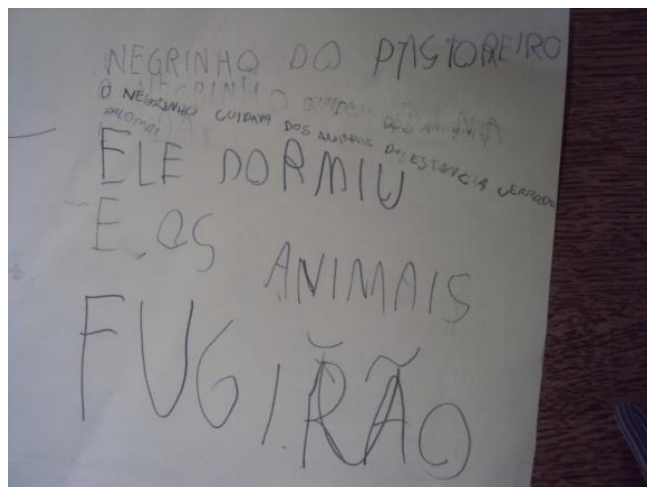 NEGRINHO DO PASTOREIRO
O NEGRINHO
O NEGRINHO CUIDAVA DOS ANIMAIS DA ESTANCIA
ELE DORMIU
E OS
ANIMAIS
FUGIRÃO